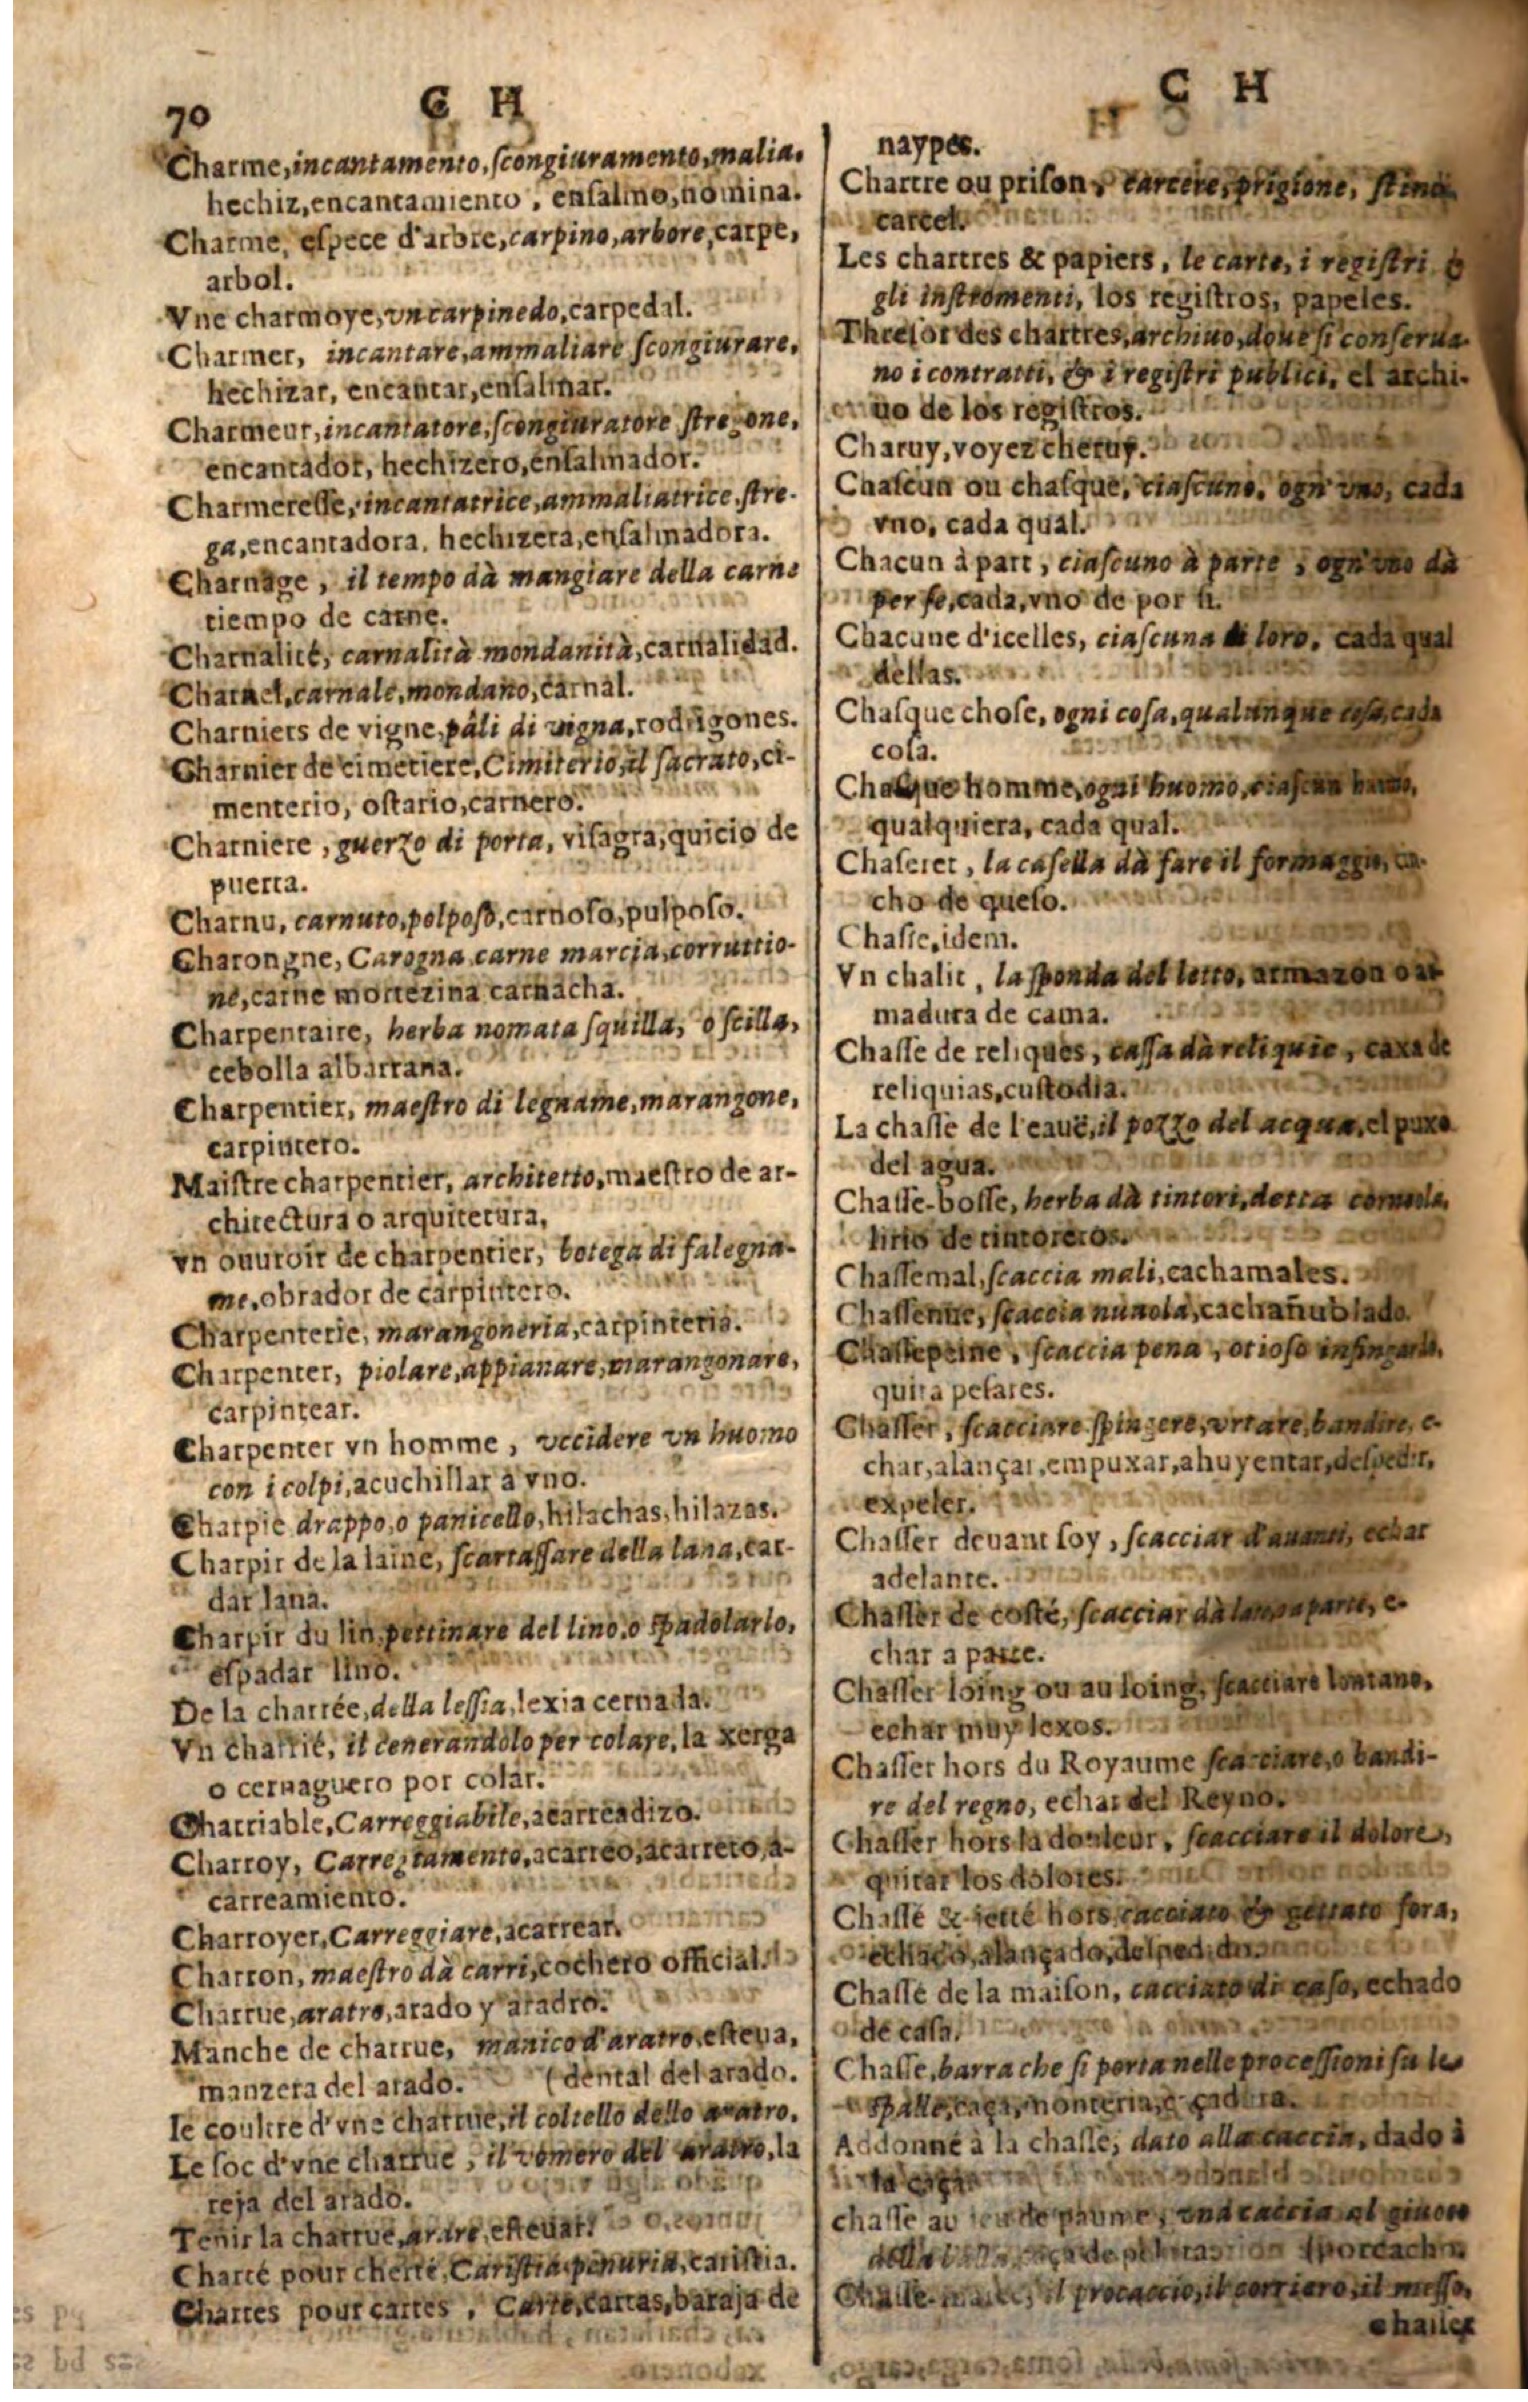 70 C H
Charme, incantamento, ſcongiuramento, malia,
hechiz, encantamiento, enſalmo, nomina.
Charme, eſpece d'arbre, carpino, arbore, carpe,
arbol.
Vne charmoye, vn carpinedo, carpedal.
Charmer, incantare, ammaliare ſcongiurare,
hechizar, encantar, enſalmar.
Charmeur, incantatore, ſcongiuratore ſtregone,
encantador, hechizero, enſalmador.
Charmereſſe, incantatrice, ammaliatrice, ſtre-
ga, encantadora, hechizera, enſalmadora.
Charnage, il tempo dà mangiare della carne
tiempo de carne.
Charnalité, carnalità mondanità, carnalidad.
Charnel, carnale, mondano, carnal.
Charniers de vigne, pâli di vigna, rodrigones.
Charnier de cimetiere, Cimiterio, il ſacrato, ci-
menterio, oſtario, carnero.
Charniere, guerzo di porta, viſagra, quicio de
puerta.
Charnu, carnuto, polpoſo, carnoſo, pulpoſo.
Charongne, Carogna carne marcia, corruttio-
ne, carne mortezina carnacha.
Charpentaire, herba nomata ſquilla, o ſcilla,
cebolla albarrana.
Charpentier, maeſtro di legname, marangone,
carpintero.
Maiſtre charpentier, architetto, maeſtro de ar-
chitectura o arquitetura,
vn ouuroir de charpentier, botega di falegna-
me, obrador de carpintero.
Charpenterie, marangoneria, carpinteria.
Charpenter, piolare, appianare, marangonare,
carpintear.
Charpenter vn homme, vccidere vn huomo
con i colpi, acuchillar a vno.
Charpie drappo, o panicello, hilachas, hilazas.
Charpir de la laine, ſcartaſſare della lana, car-
dar lana.
Charpir du lin, pettinare del lino, o ſpadolarlo,
eſpadar lino.
De la charrée, della leſſia, lexia cernada.
Vn charrié, il cenerandolo per colare, la xerga
o cernaguero por colar.
Charriable, Carreggiabile, acarreadizo.
Charroy, Carregiamento, acarreo, acarreto, a-
carreamiento.
Charroyer, Carreggiare, acarrear.
Charron, maeſtro dà carri, cochero official.
Charrue, aratro, arado y aradro.
Manche de charrue, manico d'aratro, eſteua,
manzera del arado. (dental del arado.
le coultre d'vne charrue, il coltello dello aratro,
Le ſoc d'vne charrue, il vomero del aratro, la
reja del arado.
Tenir la charrue, arare, eſteuar.
Charté pour cherté, Cariſtia, penuria, cariſtia.
Chartes pour cartes, Carte, cartas, baraja de
C H
naypes.
Chartre ou priſon, carcere, prigione,
carcel.
Les chartres & papiers, le carte, i regiſtri &
gli inſtromenti, los regiſtros, papeles.
Threſor des chartres, archiuo, doue ſi conſerua-
no i contratti, & i regiſtri publici, el archi-
uo de los regiſtros.
Charuy, voyez cheruy.
Chaſcun ou chaſque, ciaſcuno, ogn' vno, cada
vno, cada qual.
Chacun à part, ciaſcuno à parte, ogn'vno dà
per ſe, cada, vno de por ſi.
Chacune d'icelles, ciaſcuna di loro, cada qual
dellas.
Chaſque choſe, ogni coſa, qualunque coſa, cada
coſa.
Chaſque homme, ogni huomo, ciaſcun
qualquiera, cada qual.
Chaſeret, la caſella dà fare il formaggio,
cho de queſo.
Chaſie, idem.
Vn chalit, la ſponda del letto, armazon o ar-
madura de cama.
Chaſſe de reliques, caſſa dà reliquie, caxa de
reliquias, cuſtodia.
La chaſſe de l'eauë, il pozzo del acqua, el puxo
del agua.
Chaſſe-boſſe, herba dà tintori, detta
lirio de tintoreros.
Chaſſemal, ſcaccia mali, cachamales.
Chaſſenue, ſcaccia nuuola, cachañublado.
Chaſſepeine, ſcaccia pena, otioſo
quita peſares.
Chaſſer, ſcacciare ſpingere, vrtare, bandire, e-
char, alançar, empuxar, ahuyentar, deſpedir,
expeler.
Chaſſer deuant ſoy, ſcacciar d'auanti, echar
adelante.
Chaſſer de coſté, ſcacciar dà parte, e-
char a parte.
Chaſſer loing ou au loing, ſcacciare lontano,
echar muy lexos.
Chaſſer hors du Royaume ſcacciare, o bandi-
re del regno, echar del Reyno.
Chaſſer hors la douleur, ſcacciare il dolore,
quitar los dolores.
Chaſſé & ietté hors, cacciato & gettato fora,
echado, alançado, deſpedido.
Chaſſé de la maiſon, cacciato di caſo, echado
de caſa.
Chaſſe, barra che ſi porta nelle proceſſioni ſu le
ſpalle, caça, monteria,
Addonné à la chaſſe, dato alla caccia, dado à
la caça
chaſſe au ieu de paume, vna caccia al giuoco
della
Chaſſe-marée, il procaccio, il corriero, il meſſo,
chaſſer